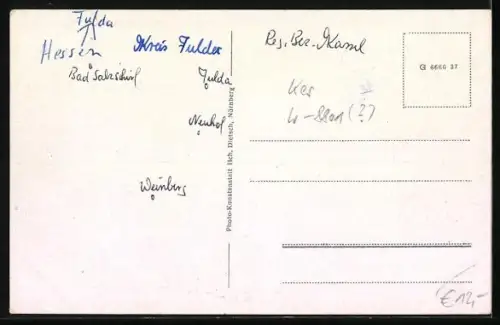 Fulda
Hessen
Kreis Fulda
Bad Salzschlirf
Fulda
Neuhof
Weinberg
Photo-Kunstanstalt Hch. Dietsch, Nürnberg
Reg. Bez. Kassel
G 6666 37
(?)
€ 12,-